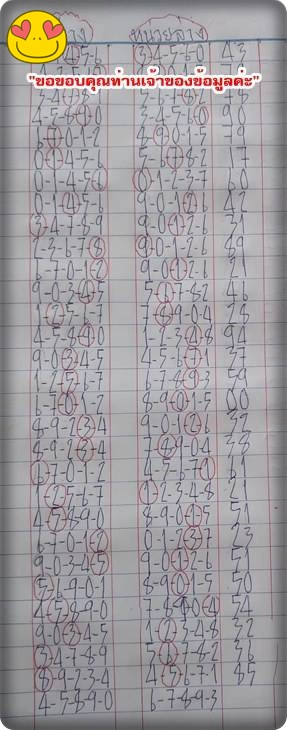 "ขอขอบคุณท่านเจ้าของข้อมูลค่ะ"
หน่วยล่าง
0-1-4-5-6 5-6-7-8-2 17
0-1-4-5-6 0-1-2-3-7 60
0-1-4-5-6 9-0-1-2-6 42
3-4-7-8-9 9-0-1-2-6 31
2-3-6-7-8 9-0-1-2-6 89
6-7-0-1-2 9-0-1-2-6 21
9-0-3-4-5 5-6-7-8-2 46
1-2-5-6-7 7-8-9-0-4 28
4-5-8-9-0 1-2-3-4-8 94
9-0-3-4-5 4-5-6-7-1 37
1-2-5-6-7 6-7-8-9-3 59
6-7-0-1-2 8-9-0-1-5 00
8-9-2-3-4 9-0-1-2-6 32
8-9-2-3-4 7-8-9-0-4 38
6-7-0-1-2 4-5-6-7-1 61
1-2-5-6-7 1-2-3-4-8 21
4-5-8-9-0 8-9-0-1-5 51
6-7-0-1-2 0-1-2-3-7 23
9-0-3-4-5 9-0-1-2-6 51
5-6-9-0-1 8-9-0-1-5 50
4-5-8-9-0 7-8-9-0-4 54
9-0-3-4-5 1-2-3-4-8 32
3-4-7-8-9 5-6-7-8-2 36
8-9-2-3-4 4-5-6-7-1 85
4-5-8-9-0 6-7-8-9-3